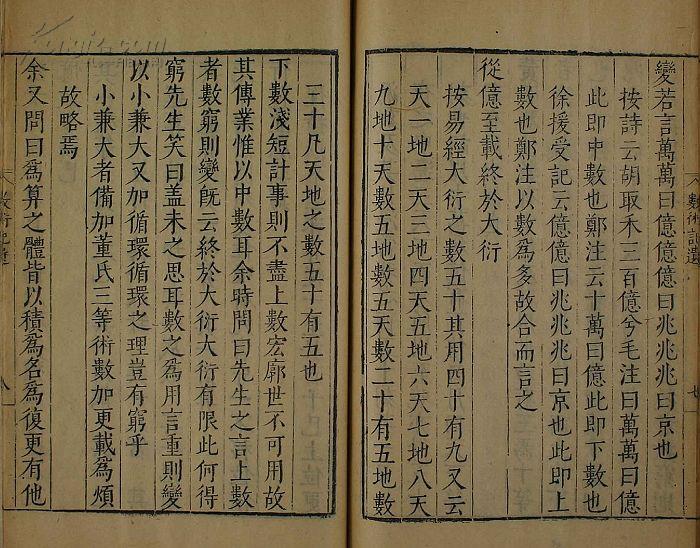 變若言萬萬曰億億億曰兆兆兆曰京也
按詩云胡取禾三百億兮毛注曰萬萬曰億
此即中數也鄭注云十萬曰億此即下數也
徐援受記云億億曰兆兆兆曰京也此即上
數也鄭注以數為多故合而言之
從億至載終於大衍
按易經大衍之數五十其用四十有九又云
天一地二天三地四天五地六天七地八天
九地十天數五地數五天數二十有五地數
三十凡天地之數五十有五也
下數淺短計事則不盡上數宏廓世不可用故
其傳業惟以中數耳余時問曰先生之言上數
者數窮則變旣云終於大衍大衍有限此何得
窮先生笑曰盖未之思耳數之為用言重則變
以小兼大又加循環循環之理豈有窮乎
小兼大者備加董氏三等術數加更載為煩
故略焉
余又問曰為算之體皆以積為名為復更有他